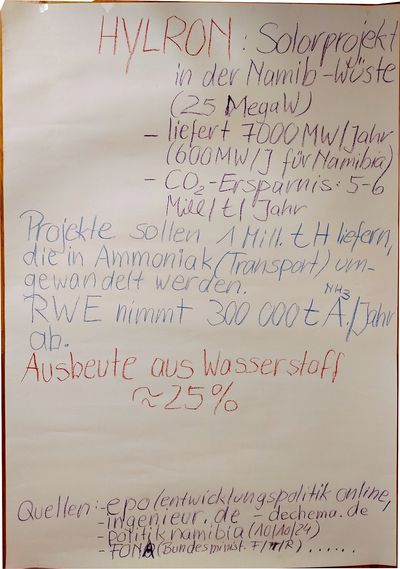 HYLRON: Solarprojekt
in der Namib-Wüste
(25 MegaW)
- liefert 7000MW/Jahr
(600MW/J für Namibia)
- CO₂-Ersparnis: 5-6
Mill/t/Jahr
Projekte sollen 1 Mill. t H liefern,
die in Ammoniak (Transport) um-
gewandelt werden. NH₃
RWE nimmt 300 000 t A./Jahr
ab.
Ausbeute aus Wasserstoff
≈25%
Quellen: - epo (entwicklungspolitik online,
- ingenieur.de - dechema.de
- politik namibia (10/10/24)
- FONA (Bundesminist. F/T/R) ......